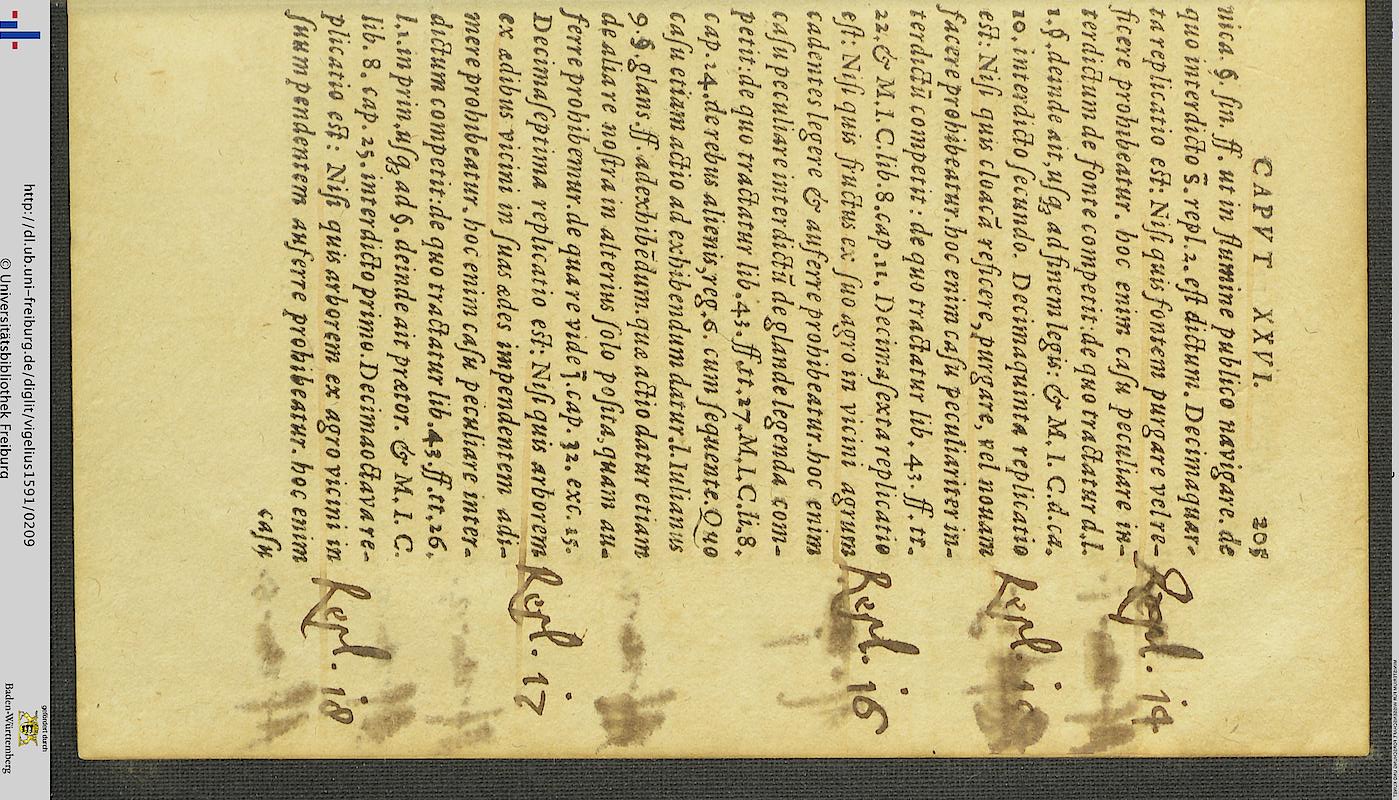 CAPVT XXVI. 205
nica. §. fin. ff. ut in flumine publico navigare. de
quo interdicto s̄. repl. 2. est dictum. Decimaquar-
ta replicatio est: Nisi quis fontem purgare vel re-
ficere probibeatur. hoc enim casu peculiare in-
terdictum de fonte competit: de quo tractatur d. l.
1. §. deinde ait, usq; ad finem legis. & M. I. C. d. ca.
10. interdicto secundo. Decimaquinta replicatio
est: Nisi quis cloacā reficere, purgare, vel nouam
facere probibeatur. hoc enim casu peculiariter in-
terdictū competit: de quo tractatur lib. 43. ff. tt.
22. & M. I. C. lib. 8. cap. 11. Decimasexta replicatio
est: Nisi quis fructus ex suo agro in vicini agrum
cadentes legere & auferre prohibeatur. hoc enim
casu peculiare interdictū de glande legenda com-
petit: de quo tractatur lib. 43. ff. tt. 27. M. I. C. li. 8.
cap. 24. de rebus alienis, reg. 6. cum sequente. Quo
casu etiam actio ad exhibendum datur. l. Iulianus
9. §. glans. ff. ad exhibēdum. quæ actio datur etiam
de alia re nostra in alterius solo posita, quam au-
ferre prohibemur. de qua re vide ī. cap. 32. exc. 15.
Decimaseptima replicatio est: Nisi quis arborem
ex ædibus vicini in suas ædes impendentem adi-
mere prohibeatur. hoc enim casu peculiare inter-
dictum competit: de quo tractatur lib. 43. ff. tt. 26.
l. 1. in prin. usq; ad §. deinde ait prætor. & M. I. C.
lib. 8. cap. 25. interdicto primo. Decimaoctava re-
plicatio est: Nisi quis arborem ex agro vicini in
suum pendentem auferre prohibeatur. hoc enim
casu
Repl. 14
Repl. 15
Repl. 16
Repl. 17
Repl. 18
http://dl.ub.uni-freiburg.de/diglit/vigelius1591/0209
© Universitätsbibliothek Freiburg
gefördert durch
Baden-Württemberg